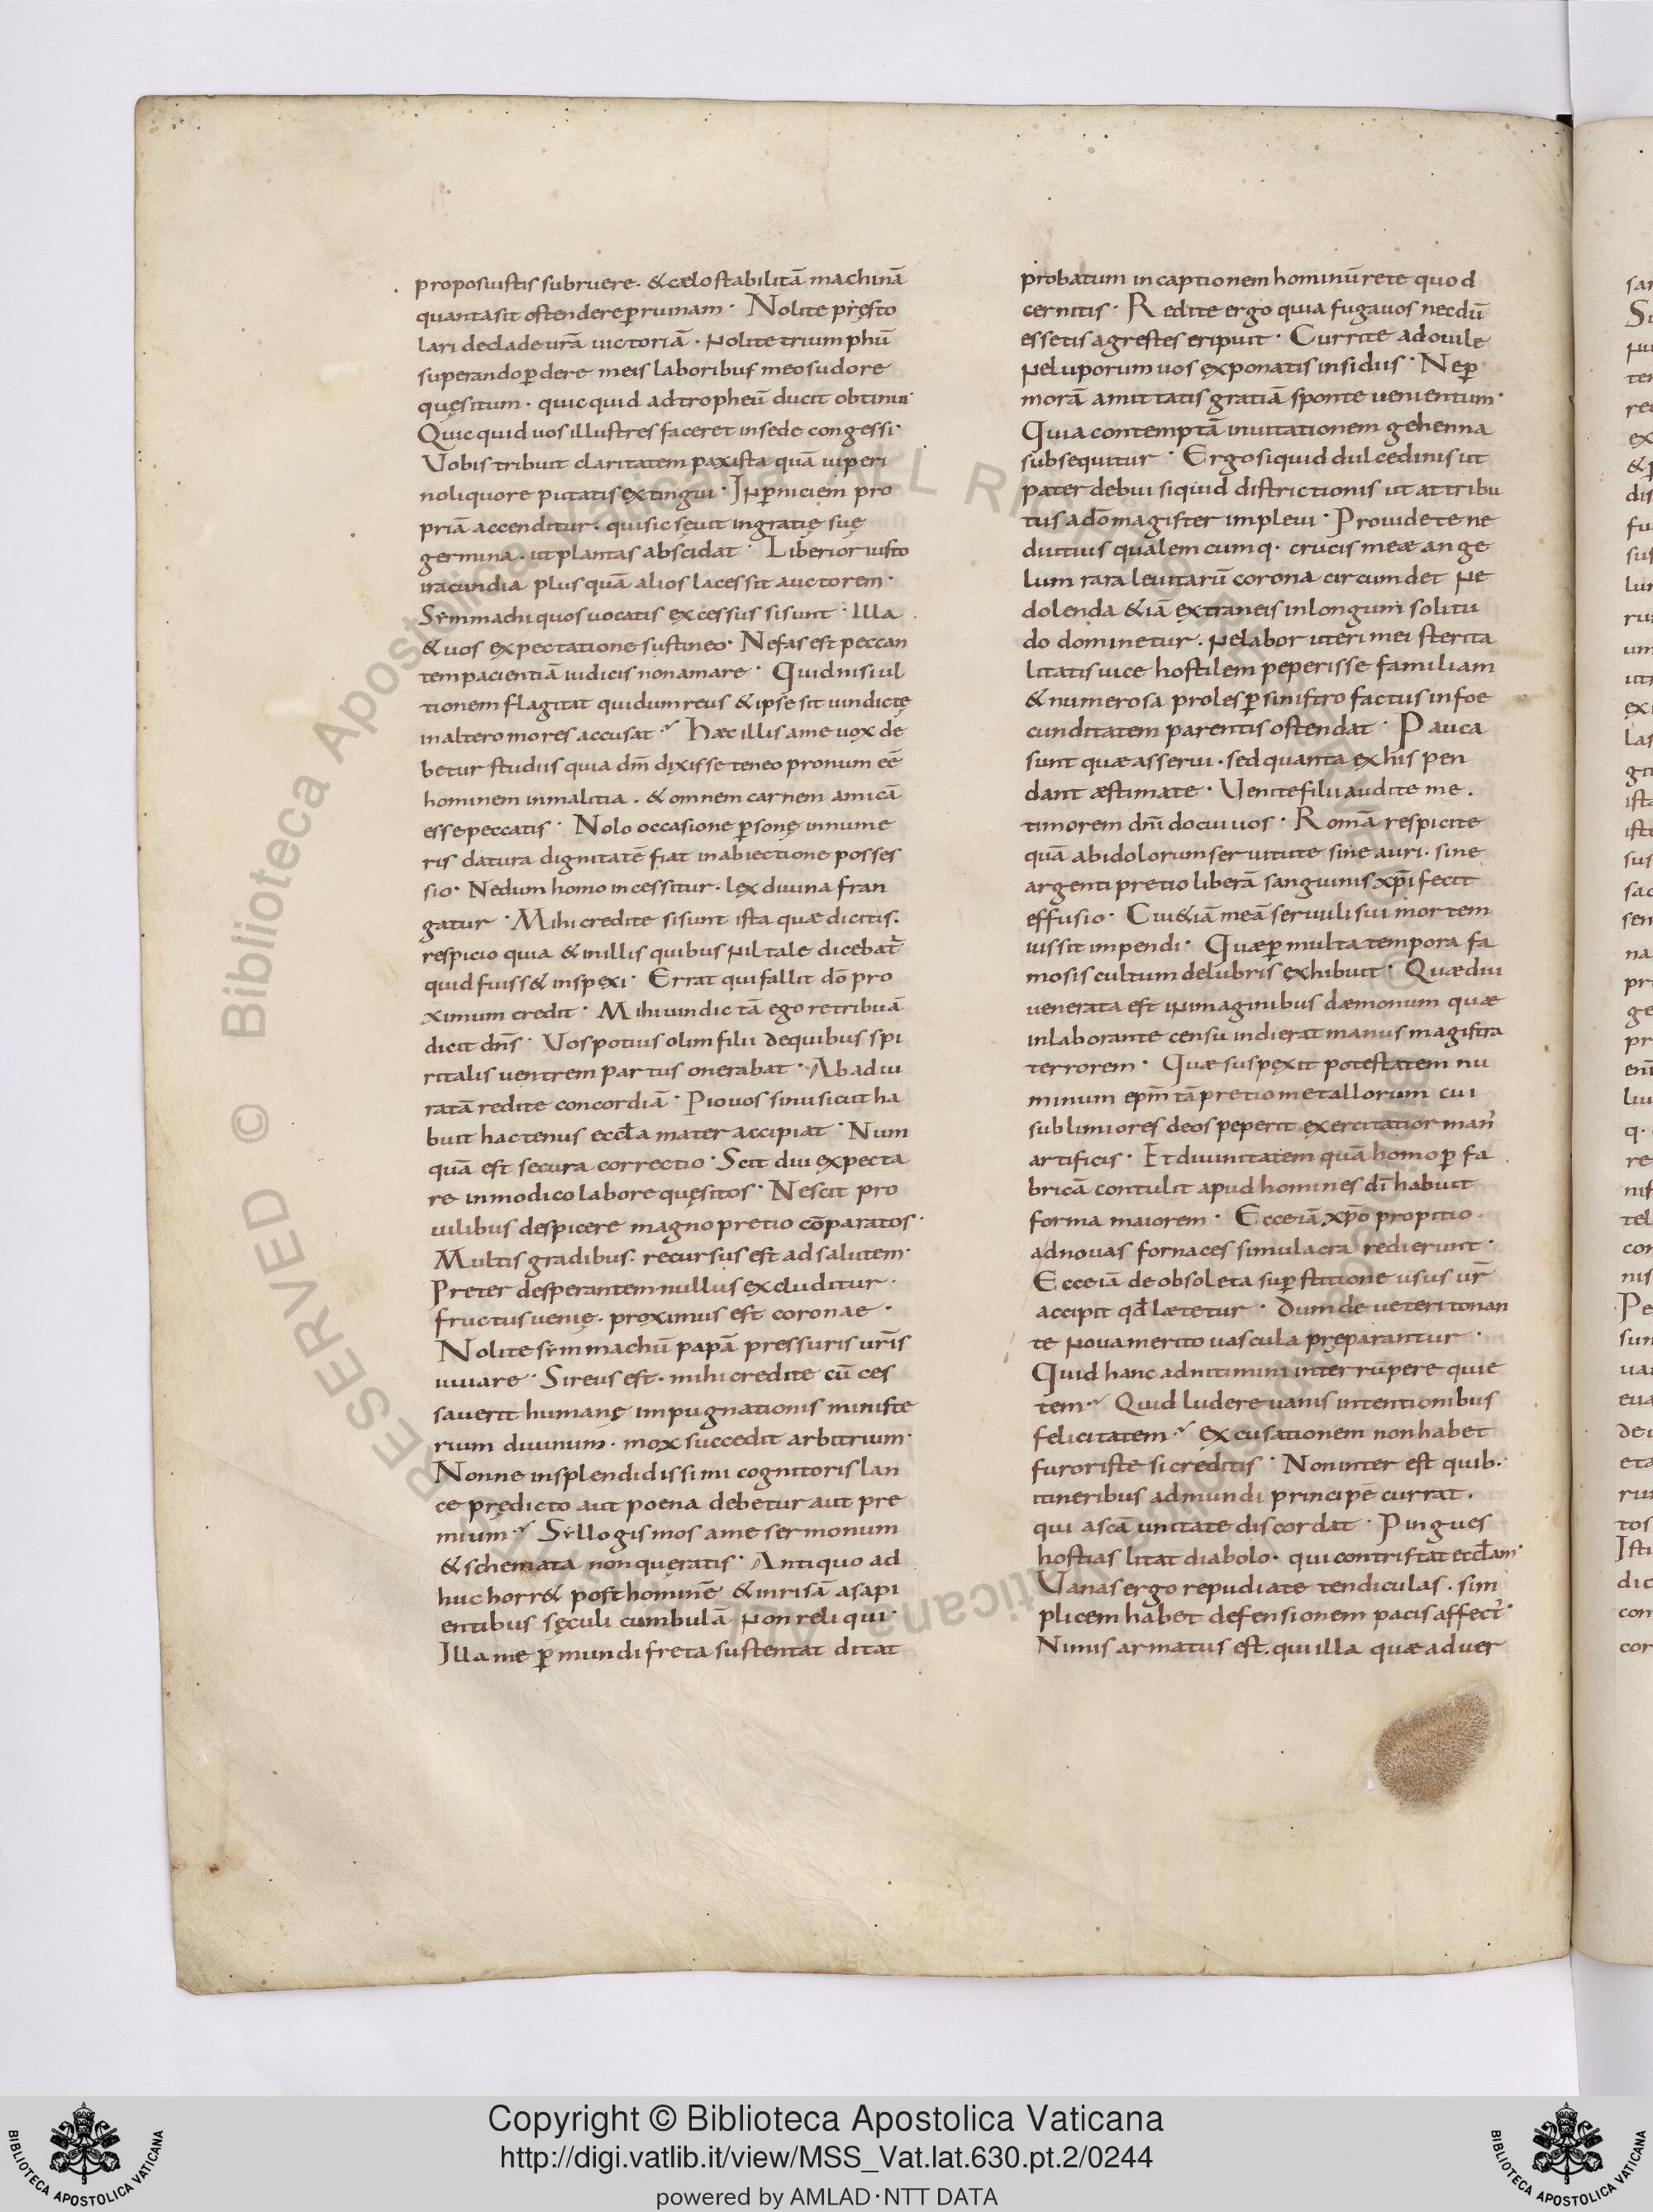 proposuistis subruere. & cælo stabilitā machinā
quanta sit ostendere ꝑ ruinam. Nolite pręsto
lari de clade urā uictoriā. Nolite triumphū
superando ꝑdere meis laboribus meo sudore
quęsitum. quicquid ad tropheū ducit obtinui.
Quicquid uos illustres faceret in sede congessi.
Vobis tribuit claritatem pax ista quā uiperi
no liquore putatis extingui. In ꝑniciem pro
priā accenditur. qui sic seuit in gratię suę
germina. ut plantas abscidat. Liberior iusto
iracundia plus quā alios lacessit auctorem.
Symmachi quos uocatis excessus si sunt. Illa
& uos expectatione sustineo. Nefas est peccan
tem pacientiā iudicis non amare. Quid nisi ul
tionem flagitat qui dum reus & ipse sit uindictę
in altero mores accusat. Hæc illis a me uox de
betur studiis quia dm̄ dixisse teneo pronum eē
hominem in malitia. & omnem carnem amicā
esse peccatis. Nolo occasione ꝑsonę in nume
ris datura dignitatē fiat in abiectione posses
sio. Ne dum homo incessitur. lex diuina fran
gatur. Mihi credite si sunt ista quæ dicitis.
respicio quia & in illis quibus nil tale dicebat̄
quid fuiss& inspexi. Errat qui fallit dō pro
ximum credit. Mihi uindictā ego retribuā
dicit dn̄s. Vos potius olim filii de quibus spi
ritalis uentrem partus onerabat. Ab adiu
ratā redite concordiā. Pio uos sinu sicut ha
buit hactenus eccła mater accipiat. Num
quā est secura correctio. Scit diu expecta
re in modico labore quęsitos. Nescit pro
uilibus despicere magno pretio cōparatos.
Multis gradibus. recursus est ad salutem.
Preter desperantem nullus excluditur.
fructus uenię. proximus est coronae.
Nolite symmachū papā pressuris ur̄is
iuuare. Si reus est. mihi credite cū ces
sauerit humanę impugnationis ministe
rium diuinum. mox succedit arbitrium.
Nonne in splendidissimi cognitoris lan
ce prędicto aut poena debetur aut pre
mium. Syllogismos a me sermonum
& schemata non queratis. Antiquo ad
huc horre& post hominē & inrisā a sapi
entibus sęculi cumbulā non reliqui.
Illa me ꝑ mundi freta sustentat ditat
probatum in captionem hominū rete quod
cernitis. Redite ergo quia fuga uos necdū
essetis agrestes eripuit. Currite ad ouile
ne luporum uos exponatis insidiis. Ne ꝑ
morā amittatis gratiā sponte uenientum.
Quia contemptā inuitationem gehenna
subsequitur. Ergo si quid dulcedinis ut
pater debui si quid districtionis ut attribu
tus a dō magister impleui. Prouidete ne
diutius qualemcumq. crucis meæ ange
lum rara leuitarū corona circumdet Ne
dolenda & iā extraneis in longum solitu
do dominetur. Ne labor uteri mei sterita
litatis uice hostilem peperisse familiam
& numerosa proles ꝑ sinistro factus infoe
cunditatem parentis ostendat. Pauca
sunt quæ asserui. sed quanta ex his pen
dant æstimate. Venite filii audite me.
timorem dn̄i docui uos. Romā respicite
quā ab idolorum seruitute sine auri. sine
argenti pretio liberā sanguinis xp̄i fecit
effusio. Cui &iā meā seruuli sui mortem
iussit impendi. Quæ ꝑ multa tempora fa
mosis cultum delubris exhibuit. Quæ diu
uenerata est in imaginibus dæmonum quæ
in laborante censu indierat manus magistra
terrorem. Quæ suspexit potestatem nu
minum epm̄ tā pretio metallorum cui
sublimiores deos peperit exercitatior man᾽
artificis. Et diuinitatem quā homo ꝑ fa
bricā contulit apud homines di᷑ habuit
forma maiorem. Ecce iā xp̄o propitio
ad nouas fornaces simulacra redierunt.
Ecce iā de obsoleta suꝑstitione usus ur̄
accipit qd̄ lætetur. Dum de ueteri tonan
te noua merito uascula pręparantur.
Quid hanc adnitimini interrūpere quie
tem. Quid ludere uanis intentionibus
felicitatem. excusationem non habet
furor iste si creditis. Non inter est quib.
itineribus ad mundi principē currat.
qui a scā unitate discordat. Pingues
hostias litat diabolo. qui contristat eccłam.
Vanas ergo repudiate tendiculas. sim
plicem habet defensionem pacis affect᾽.
Nimis armatus est. qui illa quæ aduer
Copyright © Biblioteca Apostolica Vaticana
http://digi.vatlib.it/view/MSS_Vat.lat.630.pt.2/0244
powered by AMLAD·NTT DATA
BIBLIOTECA APOSTOLICA VATICANA
BIBLIOTECA APOSTOLICA VATICANA